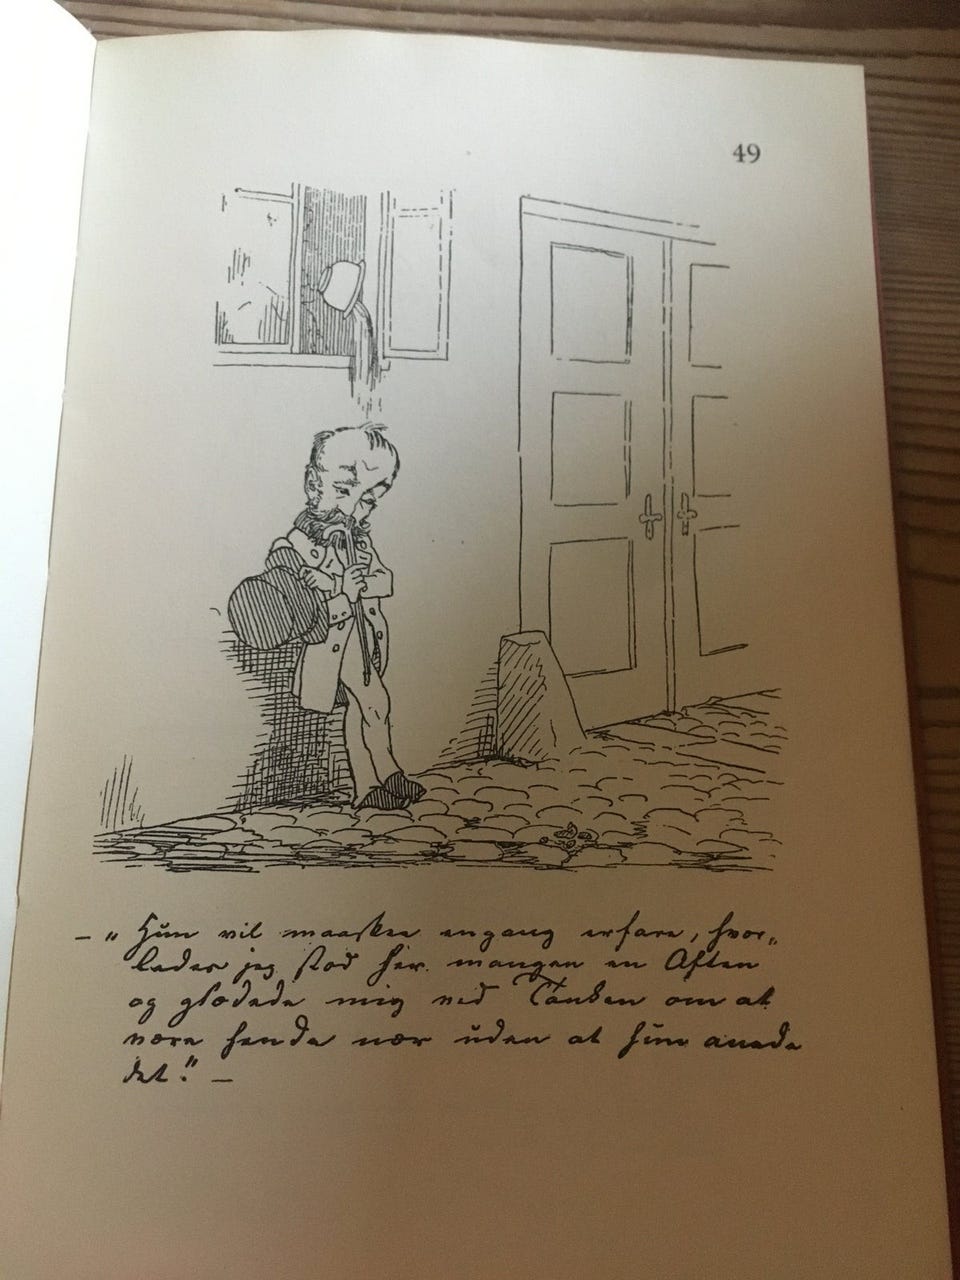 49
— „Hun vil maaskee engang erfare, hvor„
ledes jeg stod her mangen en Aften
og glædede mig ved Tanken om at
være hende nær uden at hun anede
det." —